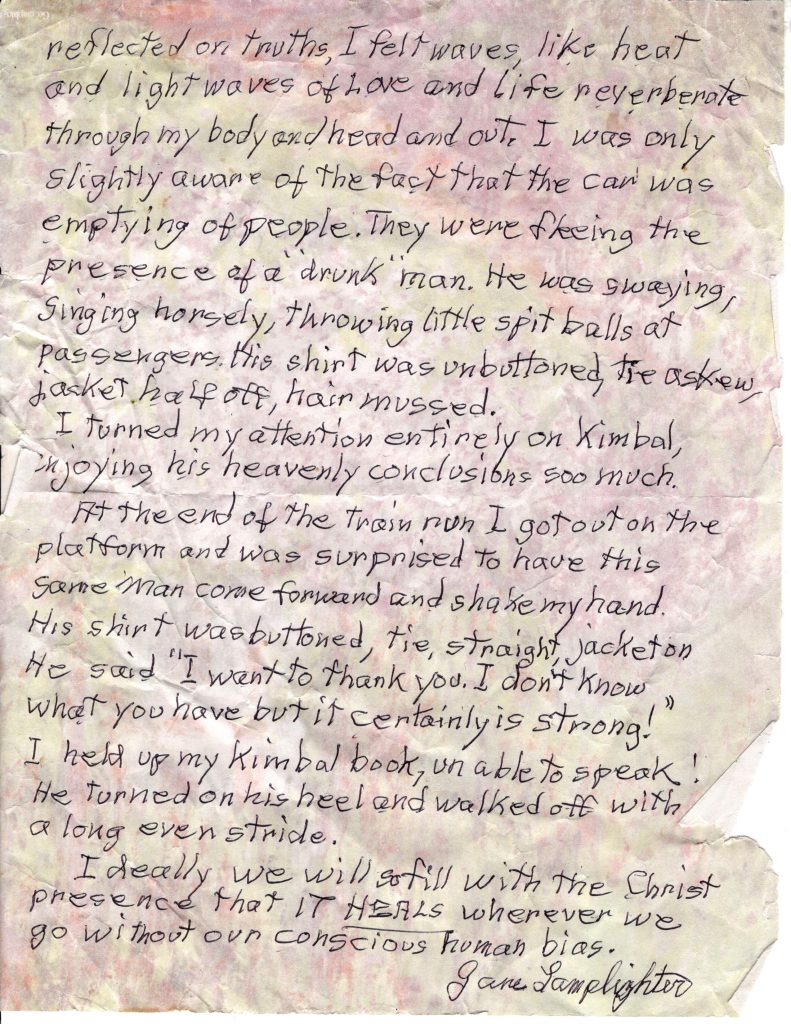 reflected on truths, I felt waves, like heat
and light waves of Love and life reverberate
through my body and head and out. I was only
slightly aware of the fact that the car was
emptying of people. They were fleeing the
presence of a "drunk" man. He was swaying,
singing horsely, throwing little spit balls at
passengers. His shirt was unbuttoned, tie askew,
jacket half off, hair mussed.
I turned my attention entirely on Kimbal,
injoying his heavenly conclusions soo much.
At the end of the train run I got out on the
platform and was surprised to have this
same man come forward and shake my hand.
His shirt was buttoned, tie, straight, jacket on
He said "I want to thank you. I don't know
what you have but it certainly is strong!"
I held up my Kimbal book, unable to speak!
He turned on his heel and walked off with
a long even stride.
Ideally we will so fill with the Christ
presence that IT HEALS wherever we
go without our conscious human bias.
Jane Lamplighter